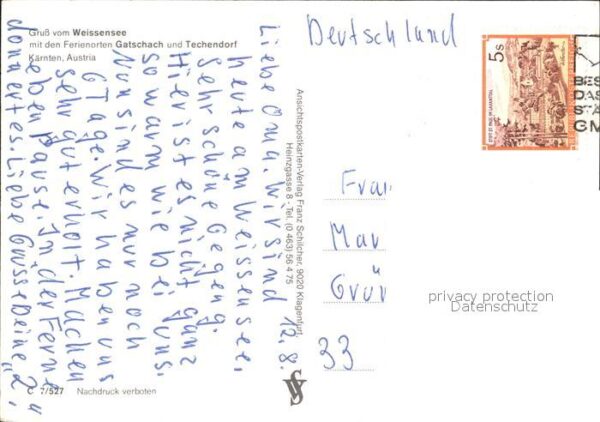 Gruß vom Weissensee
mit den Ferienorten Gatschach und Techendorf
Kärnten, Austria
12.8.
Liebe Oma. Wir sind
heute am Weissensee,
Sehr schöne Gegend.
Hier ist es nicht ganz
so warm wie bei uns.
Nun sind es nur noch
6 Tage. Wir haben uns
sehr gut erholt. Machen
eben Pause. In der Ferne
donnert es. Liebe Grüsse Deine 2
u
C 7/527 Nachdruck verboten
Ansichtspostkarten-Verlag Franz Schilcher, 9020 Klagenfurt,
Heinzgasse 8 - Tel. (0 463) 56 4 75
Deutschland
Frau
Mar
Grün
33
5s
BES
DAS
STÄ
GM
privacy protection
Datenschutz